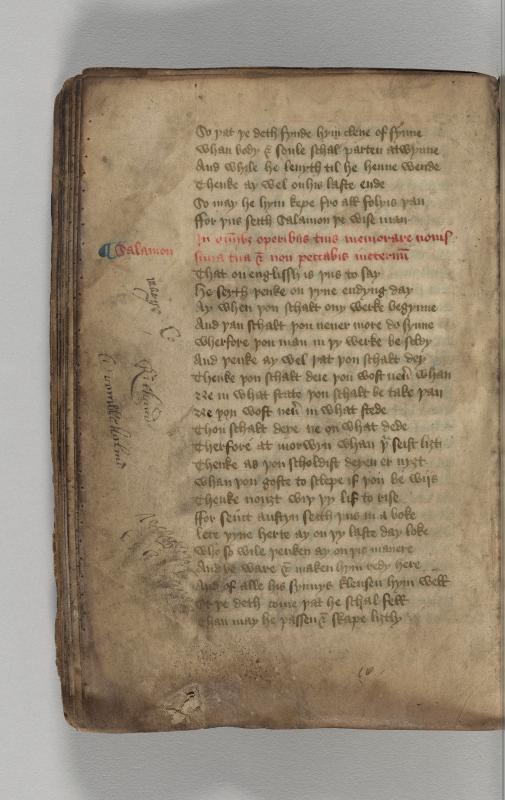 So þat þe deth fynde hym clene of synne
Whan body & soule schal parten atwynne
And while he leuyth til he henne wende
Thenke ay wel on his laste ende
So may he hym kepe fro all folyis þan
ffor þus seith Salamon þe wise man
In omībȝ operibus tuis memorare nouis
Salamon
sima tua & non peccabis in eternū
That on englissh is þus to say
He seyth þenke on þyne endyng day
Ay when þou schalt ony werke begynne
And þan schalt þou neuer more do synne
Wherfore þou man in þy werke be sley
And þenke ay wel þat þou schalt dey
Thenke þou schalt deie þou wost neu̅ whan
Ne in what state þou schalt be take þan
Ne þou wost neu̅ in what stede
Thou schalt deye ne on what dede
Therfore at morwyn whan þu seist liȝt
Thenke as þou scholdist deyen er nyȝt
Whan þou goste to slepe if þou be wijs
Thenke nouȝt wiþ þy lif to rise
ffor seint austyn seith þus in a boke
Lete þyne herte ay on þy laste day loke
Who so wile þenken ay on þis manere
And be ware & maken hym redy here
And of alle his synnys klensen hym well
Or þe deth come þat he schal fell
Than may he passen & skape liȝtly
Richard